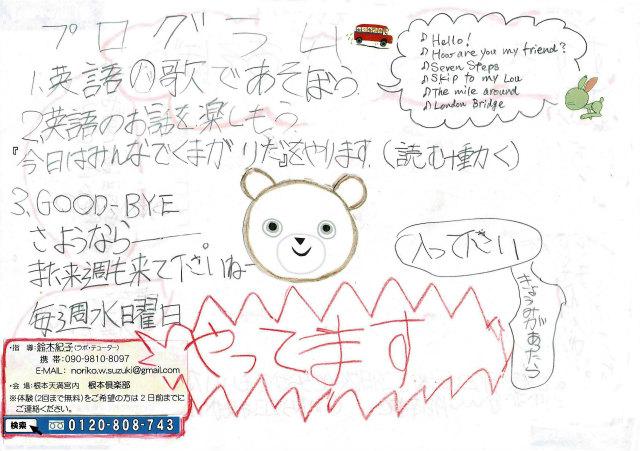 プログラム
1.英語の歌であそぼう
♪Hello!
♪How are you my friend?
♪Seven Steps
♪Skip to my Lou
♪The mile around
♪London Bridge
2.英語のお話を楽しもう
『今日はみんなでくまがりだ』をやります (読む+動く)
3.GOOD-BYE
さようなら
また来週も来て下さいねー
毎週水曜日
やってます
入って下さい
きょうみがあったら
・指 導:鈴木紀子(ラボ・テューター)
携 帯:090-9810-8097
E-MAIL: noriko.w.suzuki@gmail.com
・会 場:根本天満宮内 根本倶楽部
※体験(2回まで無料)をご希望の方は2日前までに
ご連絡ください。
検索 0120-808-743